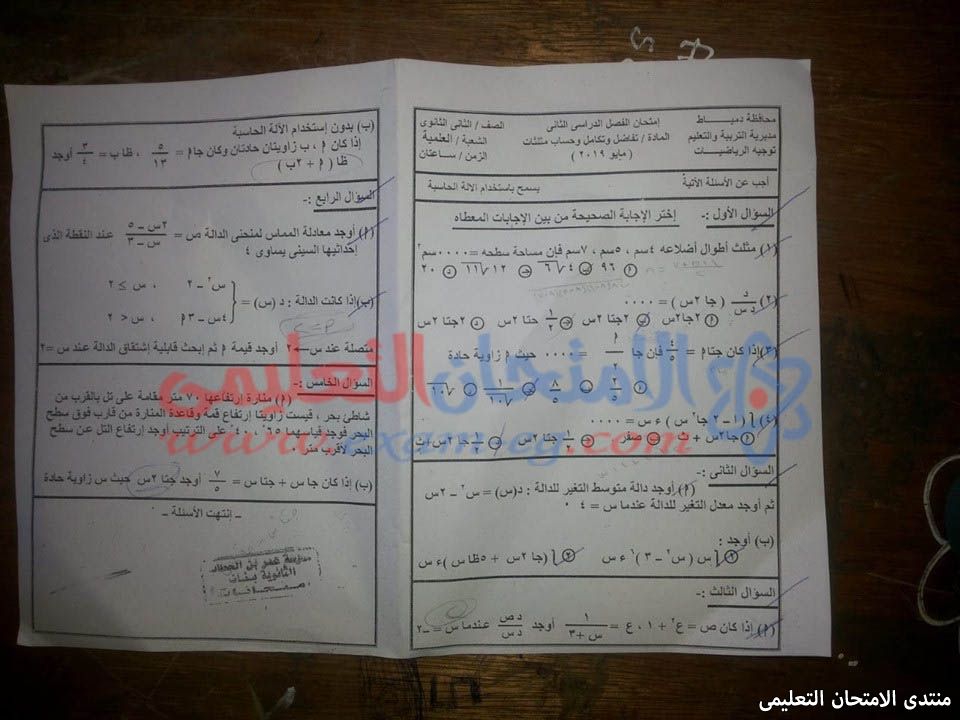 محافظة دمياط
مديرية التربية والتعليم
توجيه الرياضيات
إمتحان الفصل الدراسى الثانى
المادة / تفاضل وتكامل وحساب مثلثات
( مايو ٢٠١٩ )
الصف / الثانى الثانوى
الشعبة / العلمية
الزمن / ساعتان
أجب عن الأسئلة الآتية
يسمح باستخدام الالة الحاسبة
السؤال الأول :- إختر الإجابة الصحيحة من بين الإجابات المعطاه
(١) مثلث أطوال أضلاعه ٤سم ، ٥سم ، ٧سم فإن مساحة سطحه = ٠٠٠٠سم٢
٩٦ ٤√٦ ١٢√١١ ٢٠
(٢) د/دس ( جا ٢س ) = ٠٠٠٠
٢جا٢س ٢جتا ٢س ١/٢ جتا ٢س ٢جتا ٢س
(٣) إذا كان جتا م = ٤/٥ فإن جا م/٢ = ٠٠٠٠ حيث م زاوية حادة
٢/٥ ٨/٥ ١/√١٠ √١٠
(٤) ∫( ١ – ٢ جا٢ س ) ء س = ٠٠٠٠
جا٢س + ث صفر ١/٢ جتا ٢س ١/٢ جا ٢س + ث
السؤال الثانى :-
(م) أوجد دالة متوسط التغير للدالة : د(س) = س٢ – ٢س
ثم أوجد معدل التغير للدالة عندما س = ٤ ٠
(ب) أوجد :
١ ∫ س ( س٢ – ٣ ) ء س ٢ ∫ ( جا ٢س + ٥ظا س ) ء س
السؤال الثالث :-
(م) إذا كان ص = ع٢ + ١ ، ع = ١/س + ٣ أوجد د ص/د س عندما س = – ٢
(ب) بدون إستخدام الآلة الحاسبة
إذا كان م ، ب زاويتان حادتان وكان جا م = ٥/١٣ ، ظا ب = ٣/٤ أوجد
ظا ( م + ٢ب )
السؤال الرابع :-
(م) أوجد معادلة المماس لمنحنى الدالة ص = ٢س – ٥/س – ٣ عند النقطة الذى
إحداثيها السينى يساوى ٤
(ب) إذا كانت الدالة : د (س) =
س٢ – ٢ ، س ≤ ٢
٤س – ٣م ، س > ٢
متصلة عند س ← ٢ أوجد قيمة م ثم إبحث قابلية إشتقاق الدالة عند س = ٢
السؤال الخامس :-
(م) منارة إرتفاعها ٧٠ متر مقامة على تل بالقرب من
شاطئ بحر ، قيست زاويتا إرتفاع قمة وقاعدة المنارة من قارب فوق سطح
البحر فوجد قياسهما ٦٥ ، ٤٠ على الترتيب أوجد إرتفاع التل عن سطح
البحر لأقرب متر ٠
(ب) إذا كان جا س + جتا س = ٧/٥ أوجد جتا ٢س حيث س زاوية حادة
– إنتهت الأسئلة –
مدرسة عمر بن الخطاب
الثانوية بنات
الامتحان التعليمى
www.exam-eg.com
منتدى الامتحان التعليمى